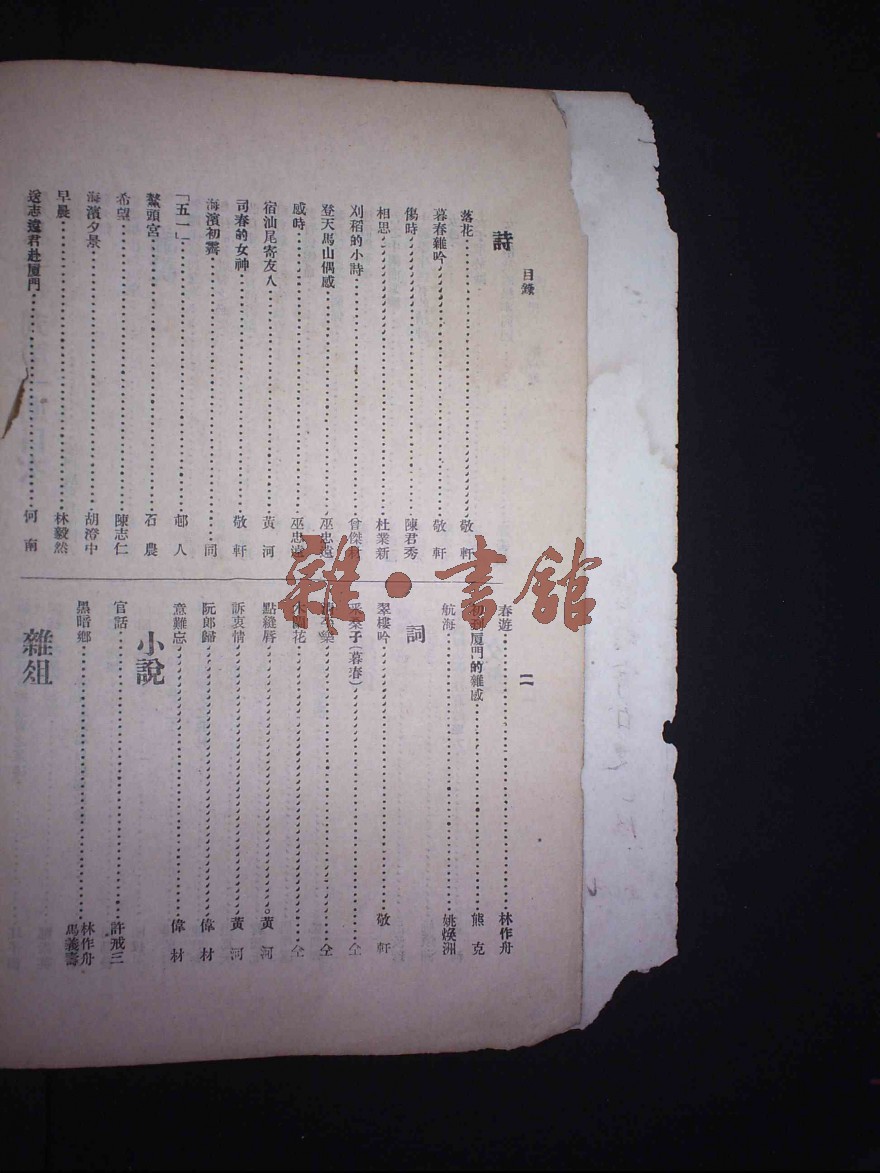 目錄
詩
落花 敬軒
暮春雜吟 敬軒
傷時 陳君秀
相思 杜業新
刈稻的小詩 曾傑
登天馬山偶感 巫忠遠
感時 巫忠遠
宿汕尾寄友人 黃河
司春的女神 敬軒
海濱初霽 同
「五一」 邨人
鰲頭宮 石農
希望 陳志仁
海濱夕景 胡澄中
早晨 林毅然
送志遠君赴厦門 何南
二
春遊 林作舟
初到厦門的雜感 熊克
航海 姚煥洲
詞
翠樓吟 敬軒
采桑子(暮春) 仝
清平樂 仝
木蘭花 仝
點絳唇 黃河
訴衷情 黃河
阮郎歸 偉材
意難忘 偉材
小說
官話 許戒三
黑暗鄉 林作舟 馬義壽
雜俎
雜·書館